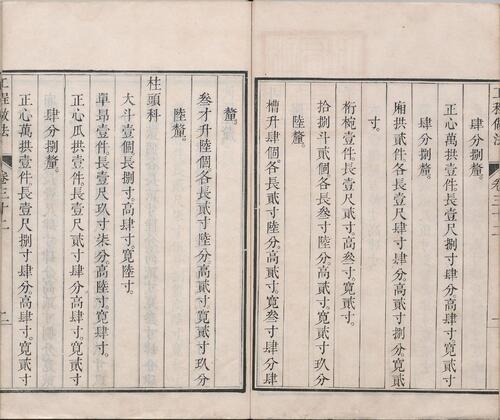 肆分捌釐。
正心萬拱壹件。長壹尺捌寸肆分。高肆寸。寬貳寸
肆分捌釐。
廂拱貳件各長壹尺肆寸肆分。高貳寸捌分。寬貳
寸。
桁椀壹件。長壹尺貳寸。高陸寸。寬貳寸。
拾捌斗貳個各長叁寸陸分。高貳寸。寬貳寸玖分
陸釐。
槽升肆個各長貳寸陸分。高貳寸。寬叁寸肆分肆
工程做法
卷三十二
一
釐。
叁才升陸個各長貳寸陸分。高貳寸。寬貳寸玖分
陸釐。
柱頭科
大斗壹個長捌寸。高肆寸。寬陸寸。
單昂壹件。長壹尺玖寸柒分。高陸寸。寬肆寸。
正心瓜拱壹件。長壹尺貳寸肆分。高肆寸。寬貳寸
肆分捌釐。
正心萬拱壹件。長壹尺捌寸肆分。高肆寸。寬貳寸
工程做法
卷三十二
二